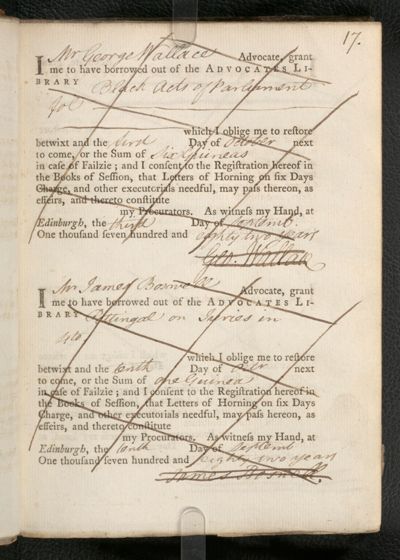 17.
I Mr George Wallace Advocate, grant
me to have borrowed out of the ADVOCATES LI-
BRARY Black Acts of Parliament
fol
which I oblige me to restore
betwixt and the third Day of October next
to come, or the Sum of Six Guineas
in case of Failzie; and I consent to the Registration hereof in
the Books of Session, that Letters of Horning on six Days
Charge, and other executorials needful, may pass thereon, as
effeirs, and thereto constitute
my Procurators. As witness my Hand, at
Edinburgh, the third Day of
One thousand seven hundred and eighty two years
Geo. Wallace
I Mr James Boswell Advocate, grant
me to have borrowed out of the ADVOCATES LI-
BRARY Pettingal on Juries in
4to
which I oblige me to restore
betwixt and the tenth Day of next
to come, or the Sum of one Guinea
in case of Failzie; and I consent to the Registration hereof in
the Books of Session, that Letters of Horning on six Days
Charge, and other executorials needful, may pass hereon, as
effeirs, and thereto constitute
my Procurators. As witness my Hand, at
Edinburgh, the tenth Day of Septemr
One thousand seven hundred and eighty two years
James Boswell.